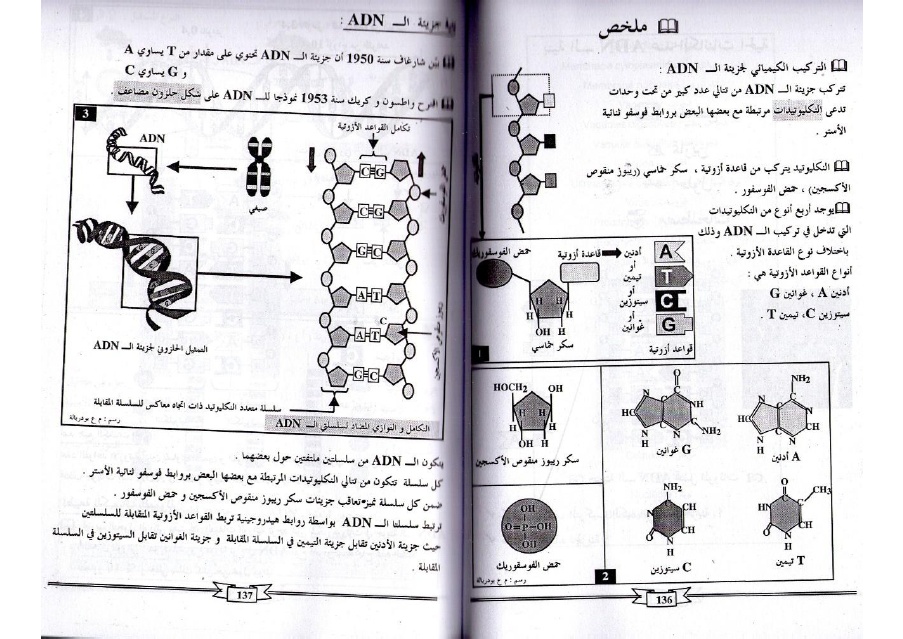 ملخص
التركيب الكيميائي لجزيئة الـــ ADN :
تتركب جزيئة الـــ ADN من تتالي عدد كبير من تحت وحدات
تدعى النكليوتيدات مرتبطة مع بعضها البعض بروابط فوسفو ثنائية
الأستر .
النكليوتيد يتركب من قاعدة أزوتية ، سكر خماسي (ريبوز منقوص
الأكسجين) ، حمض الفوسفور .
يوجد أربع أنواع من النكليوتيدات
التي تدخل في تركيب الــ ADN وذلك
باختلاف نوع القاعدة الأزوتية .
أنواع القواعد الأزوتية هي :
أدنين A ، غوانين G
سيتوزين C، تيمين T .
حمض الفوسفوريك
قاعدة أزوتية
أدنين
A
أو
تيمين
T
أو
سيتوزين
C
أو
غوانين
G
H H
H H
OH H
سكر خماسي
قواعد أزوتية
1
HOCH2 OH
H H
H H
OH H
سكر ريبوز منقوص الأكسجين
G غوانين
A أدنين
OH
O=P-OH
OH
حمض الفوسفوريك
C سيتوزين
T تيمين
2
رسم : م ع بودربالة
136
جزيئة الـــ ADN :
بين شارغاف سنة 1950 أن جزيئة الـــ ADN تحتوي على مقدار من T يساوي A
و G يساوي C
اقترح واطسون و كريك سنة 1953 نموذجا للــ ADN على شكل حلزون مضاعف .
3
تكامل القواعد الأزوتية
ADN
صبغي
C≡G
C≡G
G≡C
A=T
C
A=T
G≡C
ريبوز منقوص الأكسجين
التمثيل الحلزوني لجزيئة الـــ ADN
سلسلة متعدد النكليوتيد ذات اتجاه معاكس للسلسلة المقابلة
التكامل و التوازي المضاد لسلسلتي الـــ ADN
رسم : م ع بودربالة
يتكون الـــ ADN من سلسلتين ملتفتين حول بعضهما .
كل سلسلة تتكون من تتالي النكليوتيدات المرتبطة مع بعضها البعض بروابط فوسفو ثنائية الأستر .
ضمن كل سلسلة نميز تعاقب جزيئات سكر ريبوز منقوص الأكسجين و حمض الفوسفور .
ترتبط سلسلتا الـــ ADN بواسطة روابط هيدروجينية تربط القواعد الأزوتية المتقابلة للسلسلتين
حيث جزيئة الأدنين تقابل جزيئة التيمين في السلسلة المقابلة و جزيئة الغوانين تقابل السيتوزين في السلسلة
المقابلة .
137